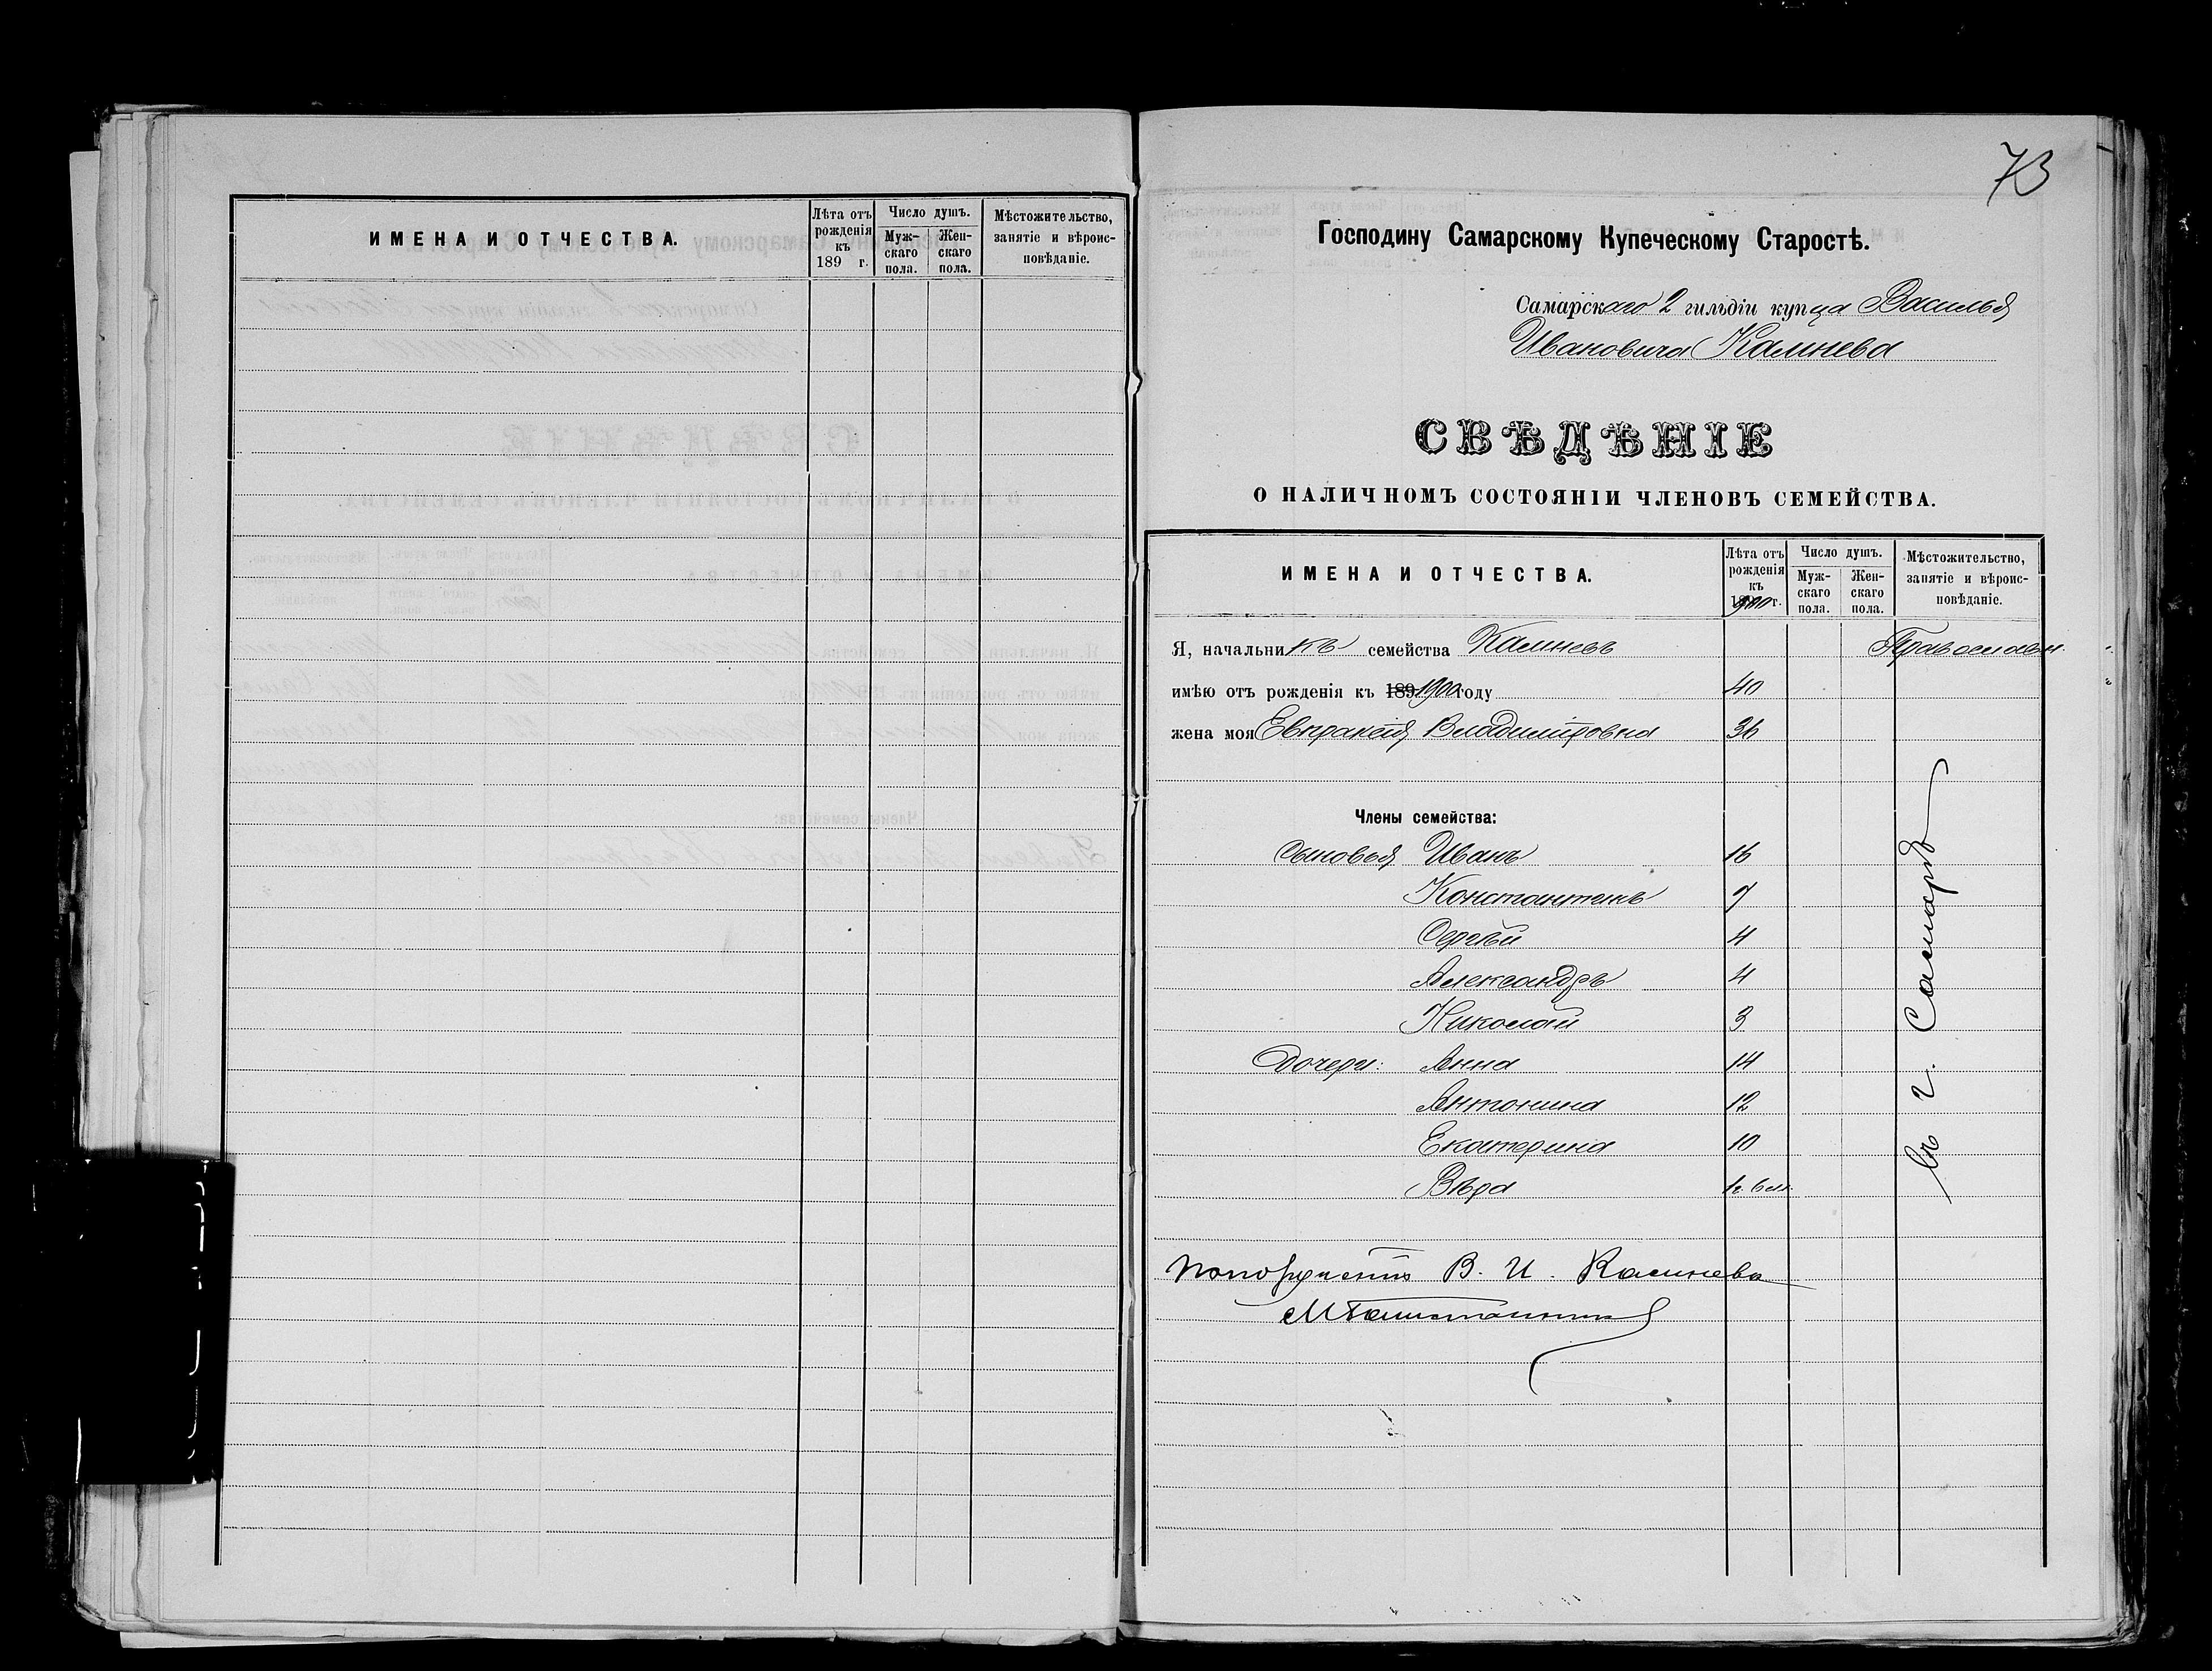 ИМЕНА И ОТЧЕСТВА.
Лѣта отъ рожденія къ 189 г.
Число душъ.
Муж-скаго пола.
Жен-скаго пола.
Мѣстожительство, занятіе и вѣроис-повѣданіе.
73
Господину Самарскому Купеческому Старостѣ.
Самарскаго 2 гильдіи купца Василья
Ивановича Калинева
СВѢДѢНІЕ
О НАЛИЧНОМЪ СОСТОЯНІИ ЧЛЕНОВЪ СЕМЕЙСТВА.
ИМЕНА И ОТЧЕСТВА.
Лѣта отъ рожденія къ 1900 г.
Число душъ.
Муж-скаго пола.
Жен-скаго пола.
Мѣстожительство, занятіе и вѣроис-повѣданіе.
Я, начальникъ семейства Калиневъ Православн.
имѣю отъ рожденія къ 189 1900 году 40
жена моя Евпраксія Владиміровна 36
Члены семейства:
Сыновья Иванъ 16
Константинъ 7
Сергѣй 4
Александръ 4
Николай 3
Дочери: Анна 14
Антонина 12
Екатерина 10
Вѣра 1 г. 6 м.
въ г. Самарѣ
По порученію В. И. Калинева